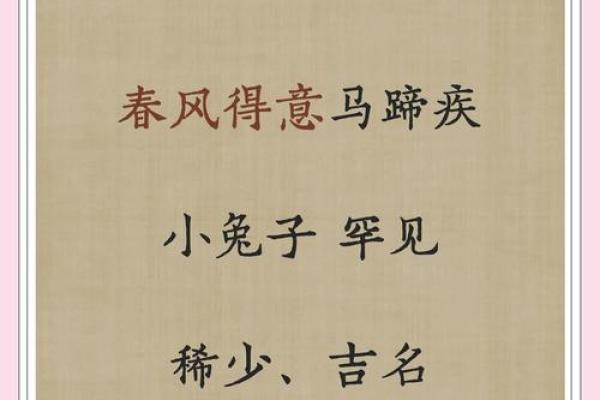 春风得意马蹄疾
小兔子 罕见
稀少、吉名